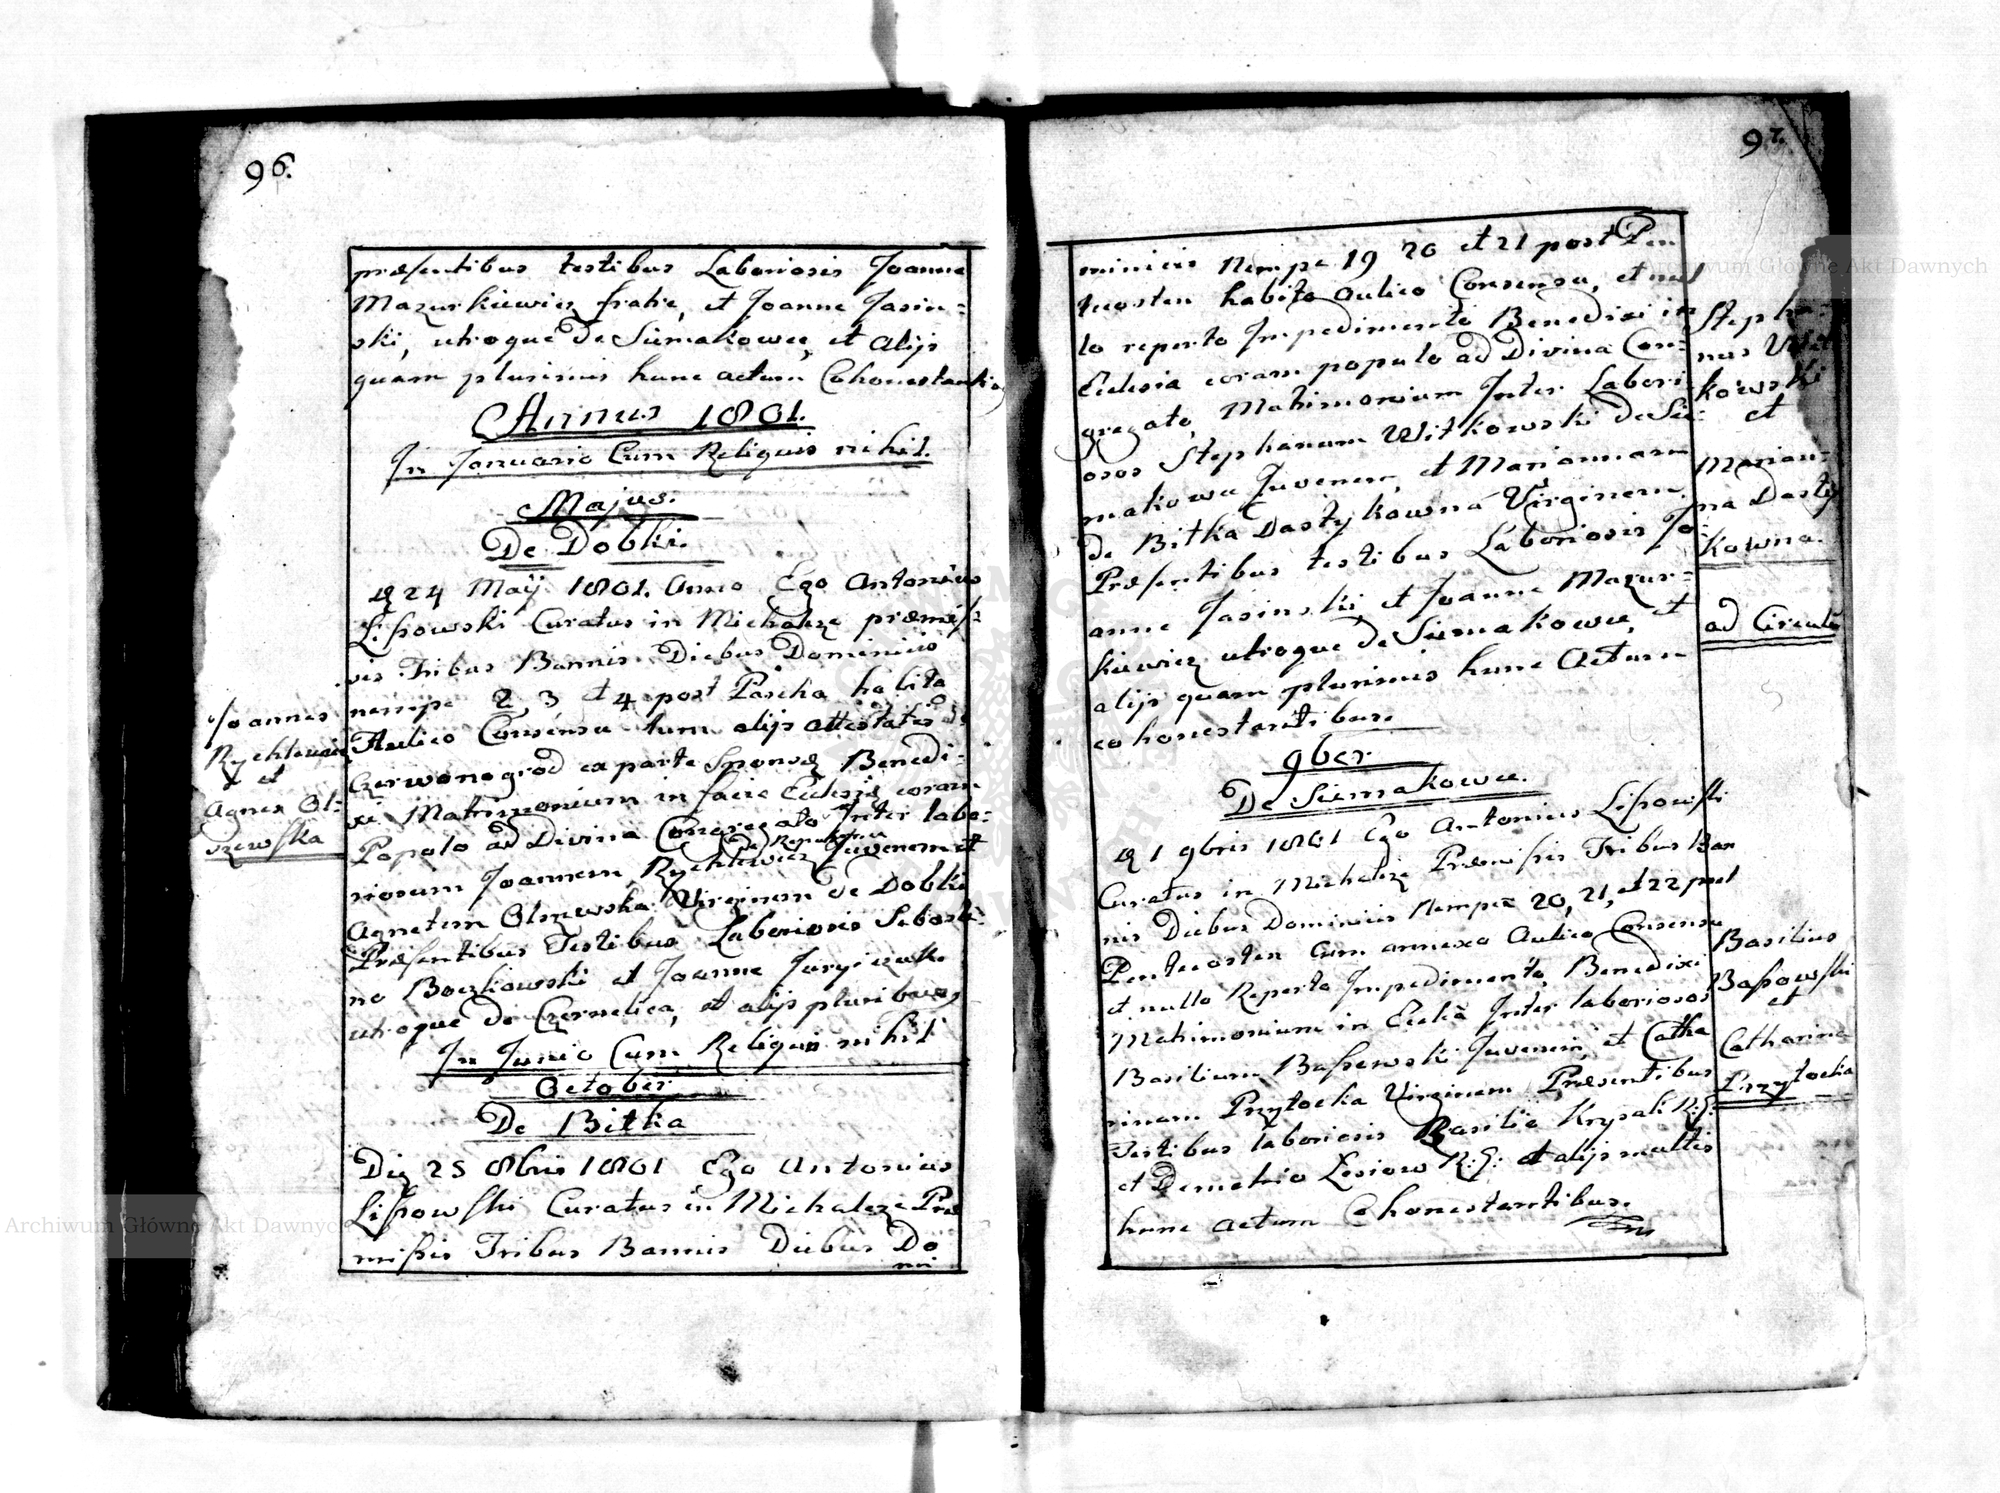 96.
præsentibus testibus Laboriosis Joanne
Mazurkiewicz fratre, et Joanne Jasin=
ski, utroque de Siemakowce, et alijs
quam plurimis hunc actum Cohonestantib9
Annus 1801.
In Januario Cum Reliquis nihil.
Majus.
De Dobki.
24 Maij 1801. Anno Ego Antonius
Lissowski Curatus in Michalcze præmiss=
sis Tribus Bannis Diebus Dominicis
nempe 2, 3, et 4 post Pascha habita
Aulico Consensu tum alijs attestatis de
Czerwonogrod ex parte Sponsæ Benedi=
xi Matrimonium in facie Eclesiæ coram
Populo ad Divina Congregato Inter labo=
riosum Joannem Rychlewicz Juvenem et
Agnetem Olszewska Virginem de Dobki
Præsentibus Testibus Laboriosis Sebasti=
no Boczkowski et Joanne Juryiczuk
utroque de Czernelica, et alijs pluribus
In Junio Cum Reliquis nihil
October
De Bitka
Die 25 8bris 1801 Ego Antonius
Lissowski Curatus in Michalcze Præ
missis Tribus Bannis Diebus Do
mi
Joannes
Rychlewicz
et
Agnes Ol=
szewska
97.
minicis Nempe 19 20 et 21 post Pen
tecosten habito Aulico Consensu, et nul
lo reperto Impedimento Benedixi in
Eclesia coram populo ad Divina Con=
gregato, Matrimonium Inter Labori
osos Stephanum Witkowski de Sie=
makowce Juvenem, et Mariannam
de Bitka Dastykowna Virginem
Præsentibus testibus Laboriosis Jo
anne Jasinski, et Joanne Mazur=
kiewicz utroque de Siemakowce, et
alijs quam plurimis hunc Actum
cohonestantibus.
9ber
De Siemakowce.
1 9bris 1801 Ego Antonius Lissowski
Curatus in Michalcze Præmissis Tribus Ban
nis Diebus Dominicis Nempe 20, 21, et 22 post
Pentecosten Cum annexo Aulico Consensu
et nullo Reperto Impedimento, Benedixi
Matrimonium in Eccliâ Inter laboriosos
Basilium Bassowski Juvenem, et Catha
rinam Przytocka Virginem Præsentibus
Testibus laboriosis Basilio Krysak R.G.
et Demetrio Lesiow R.G. et alijs multis
hunc actum Cohonestantibus.
Stepha=
nus Wit
kowski
et
Marian=
na Dasty
kowna.
ad Circulu
Basilius
Bassowski
et
Catharina
Przytocka
Archiwum Główne Akt Dawnych
Archiwum Główne Akt Dawnych